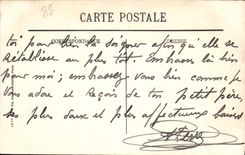 88
CARTE POSTALE
CORRESPONDANCE
toi pour bien la soigner afin qu'elle se
rétablisse au plus tôt. Embrasse la bien
pour moi; embrassez vous bien comme je
vous adore et Reçois de ton petit père
ses plus doux et plus affectueux baisers